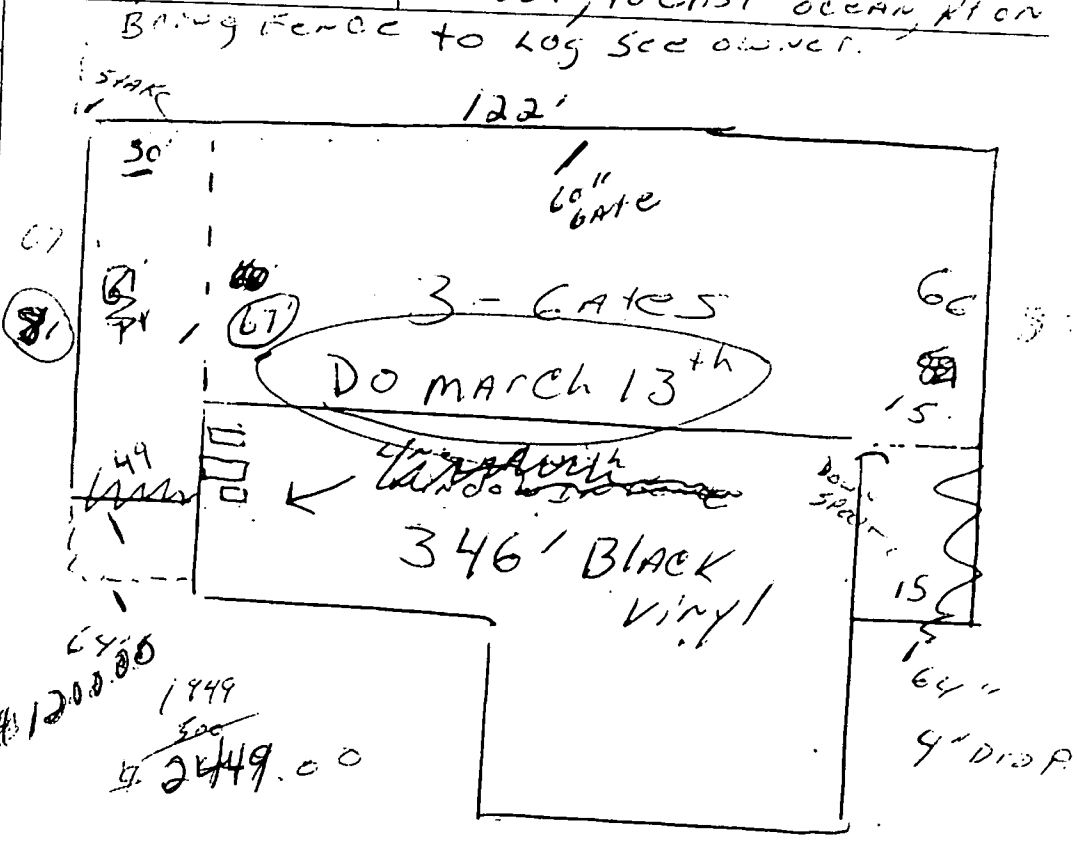 OCEAN, RT ON
Bring FENCE to Log See owner.
STAKE
122'
30'
60"
GATE
67
67'
3 - GATES
66
81
DO MARCH 13th
15.
49
DOWN
SPOUT
346' BLACK
Vinyl
15
64"
4" DROP
$1200.00
1949
500
$ 2449.00